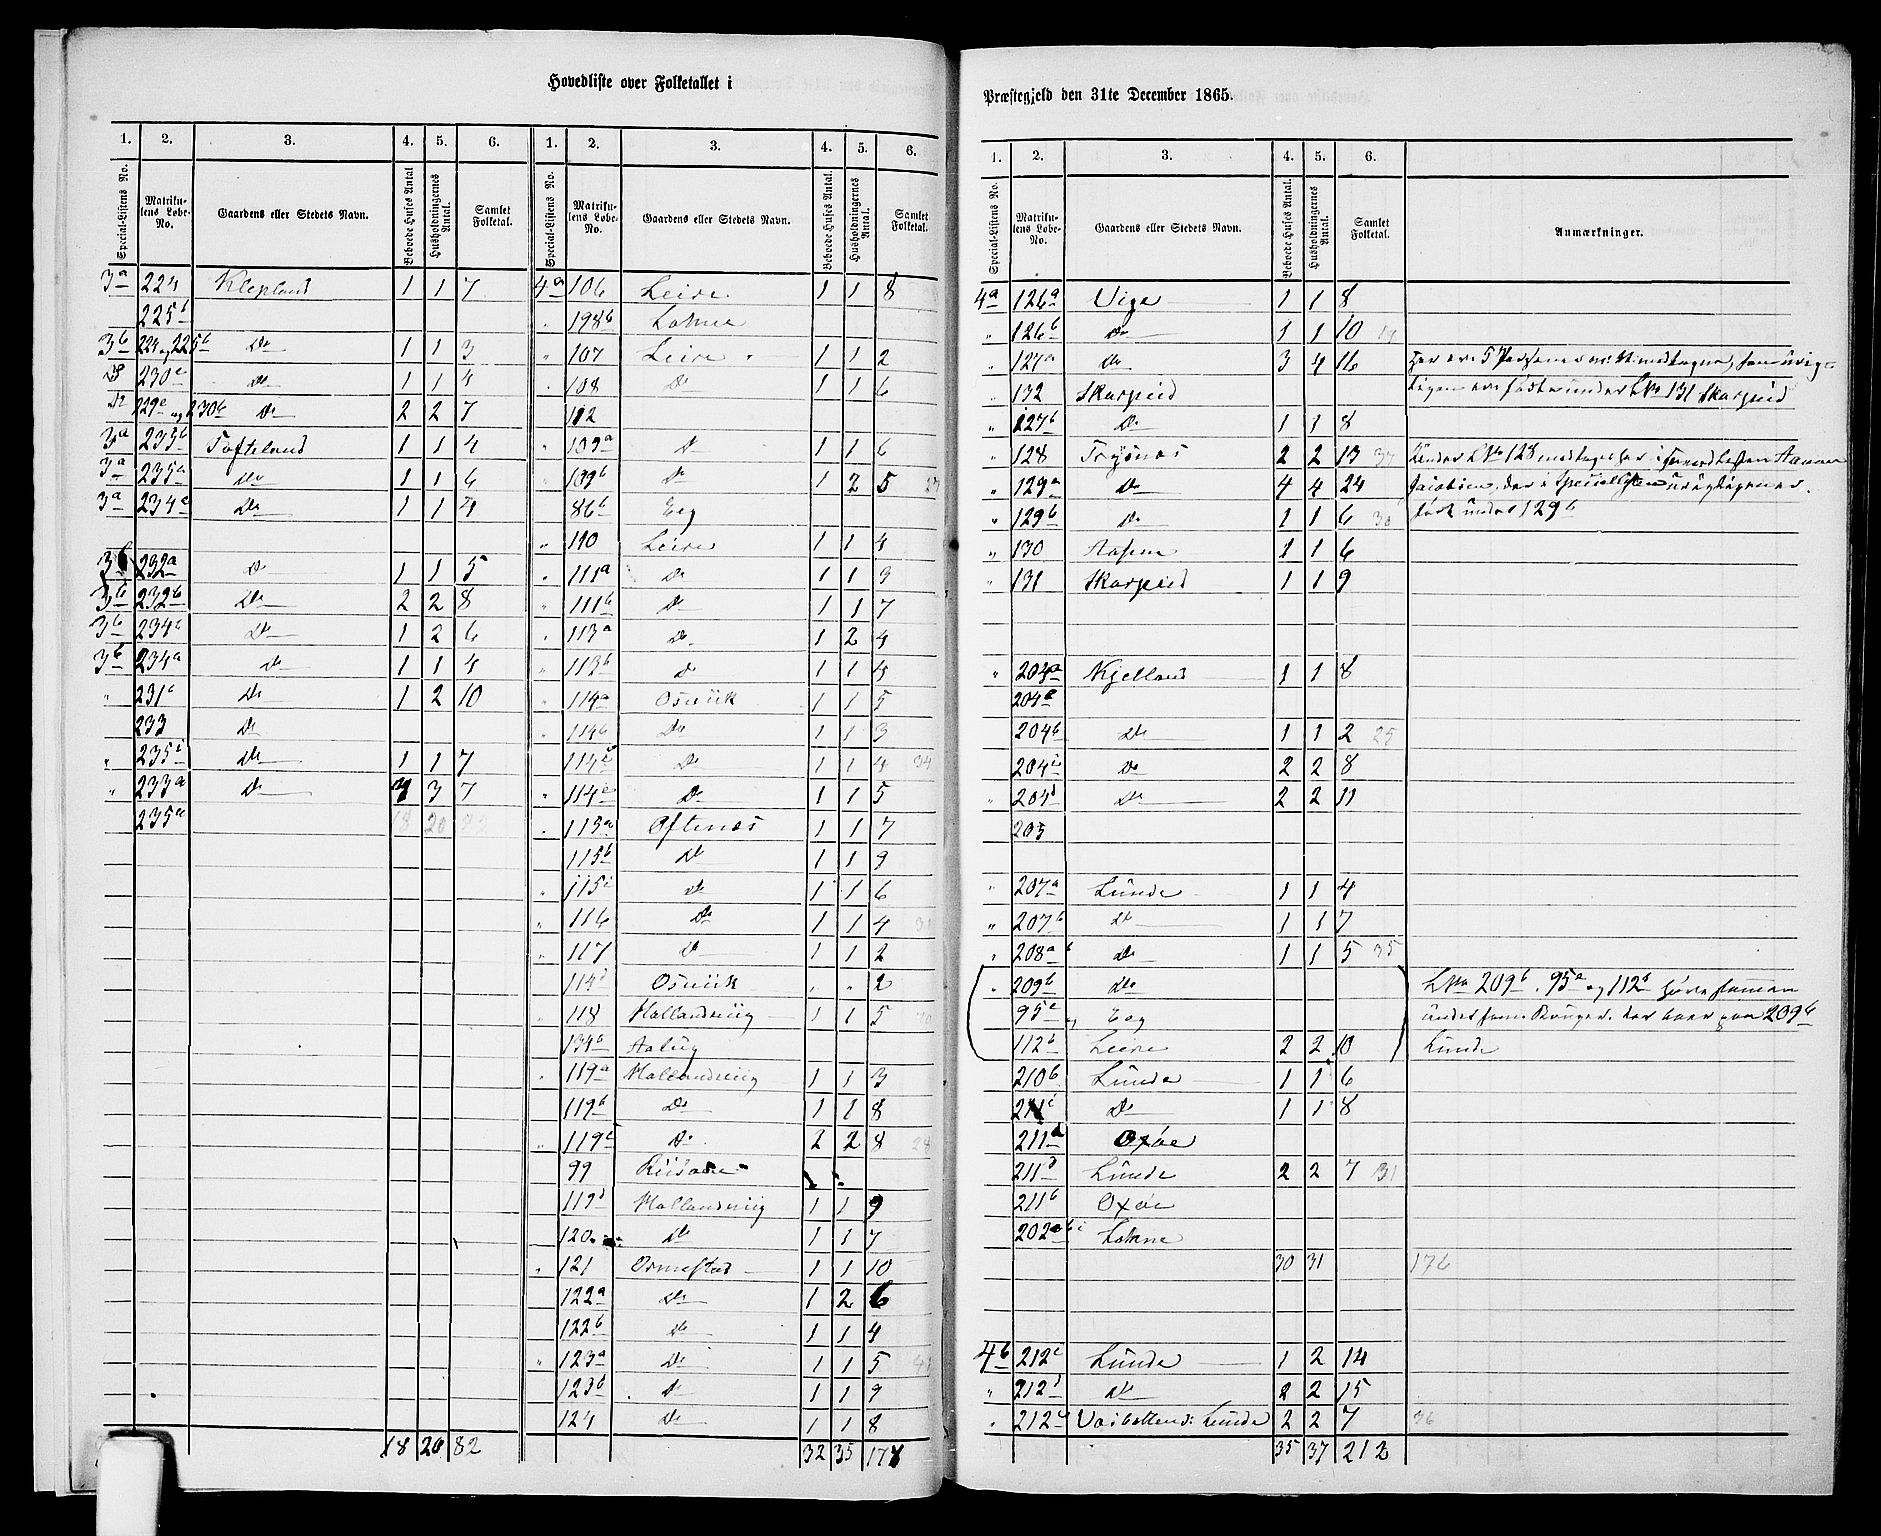 Hovedliste over Folketallet i
1. 2. 3. 4. 5. 6. 1. 2. 3. 4. 5. 6.
Special-Listens No. Matrikulens Løbe-No. Gaardens eller Stedets Navn. Beboede Huses Antal Husholdningernes Antal. Samlet Folketal. Special-Listens No. Matrikulens Løbe-No. Gaardens eller Stedets Navn. Beboede Huses Antal. Husholdningernes Antal. Samlet Folketal.
3a 224 Klepland 1 1 7
225b
3b 224 og 225b Do 1 1 3
Do 230c Do 1 1 4
Do 229c og 230b Do 2 2 7
3a 235b Tofteland 1 1 4
3a 235a Do 1 1 6
3a 234c Do 1 1 4
3b 232a Do 1 1 5
3b 232b Do 2 2 8
3b 234c Do 1 2 6
3b 234a Do 1 1 4
" 231c Do 1 2 10
233 Do
" 235c Do 1 1 7
" 233a Do 3 7
235a 18 20 82
18 20 82
4a 106 Leire 1 1 8
198b Lohne
" 107 Leire 1 1 2
108 Do 1 1 6
112
" 109a Do 1 1 6
" 109b Do 1 2 5 27
86b Eeg
" 110 Leire 1 1 4
" 111a Do 1 1 3
" 111b Do 1 1 7
" 113a Do 1 2 4
" 113b Do 1 1 4
" 114a Osviik 1 1 5
114b Do 1 1 3
114c Do 1 1 4 34
" 114e Do 1 1 5
115a Oftenæs 1 1 7
115b Do 1 1 9
" 115c Do 1 1 6
" 116 Do 1 1 4 31
" 117 Do 1 1 2
114d Osviik " " 2
" 118 Hollandsviig 1 1 5
134b Aalug
" 119a Hollandsviig 1 1 3
119b Do 1 1 8
" 119c Do 2 2 8 28
99
119d Hollandsviig 1 1 9
120 Do 1 1 7
" 121 Ormestad 1 1 10
122a Do 1 2 6
122b Do 1 1 4
" 123a Do 1 1 5
123b Do 1 1 9
124 Do 1 1 8
32 35
Præstegjeld den 31te December 1865.
1. 2. 3. 4. 5. 6.
Special-Listens No. Matrikulens Løbe-No. Gaardens eller Stedets Navn. Beboede Huses Antal. Husholdningernes Antal. Samlet Folketal. Anmærkninger.
4a 126a Vige 1 1 8
" 126b Do 1 1 10
" 127a Do 3 4 16 Her ere 5 Personer medtagne, som urig-
" 132 Skarpeid tigen ere førte under LNo 131 Skarpeid
" 127b Do 1 1 8
" 128 Trysnæs 2 2 13 37 Under LNo 128 medtages her
" 129a Do 4 4 24 Jacobsen, der i Speciallisten urigtigen er
" 129b Do 1 1 6 30 ført under 129b
" 130 Aasen 1 1 6
" 131 Skarpeid 1 1 9
" 203a Kjelland 1 1 8
204a
204b Do 1 1 2 25
" 204c Do 2 2 8
" 204d Do 2 2 11
205
" 207a Lunde 1 1 4
" 207b Do 1 1 7
" 208a b Do 1 1 5 35
" 209b Do LNo 209b, 95c og 112b
95c og Eeg under samme Bruger, der boer paa 209b
112b Leire 2 2 10 Lunde
210b Lunde 1 1 6
211c Do 1 1 8
211a Oxøe
211d Lunde 2 2 7 31
211b Oxøe
202a b c Lohne
30 31 176
4b 212c Lunde 1 2 14
" 212d Do 2 2 15
" 212e Lunde 2 2 7 36
35 37 212